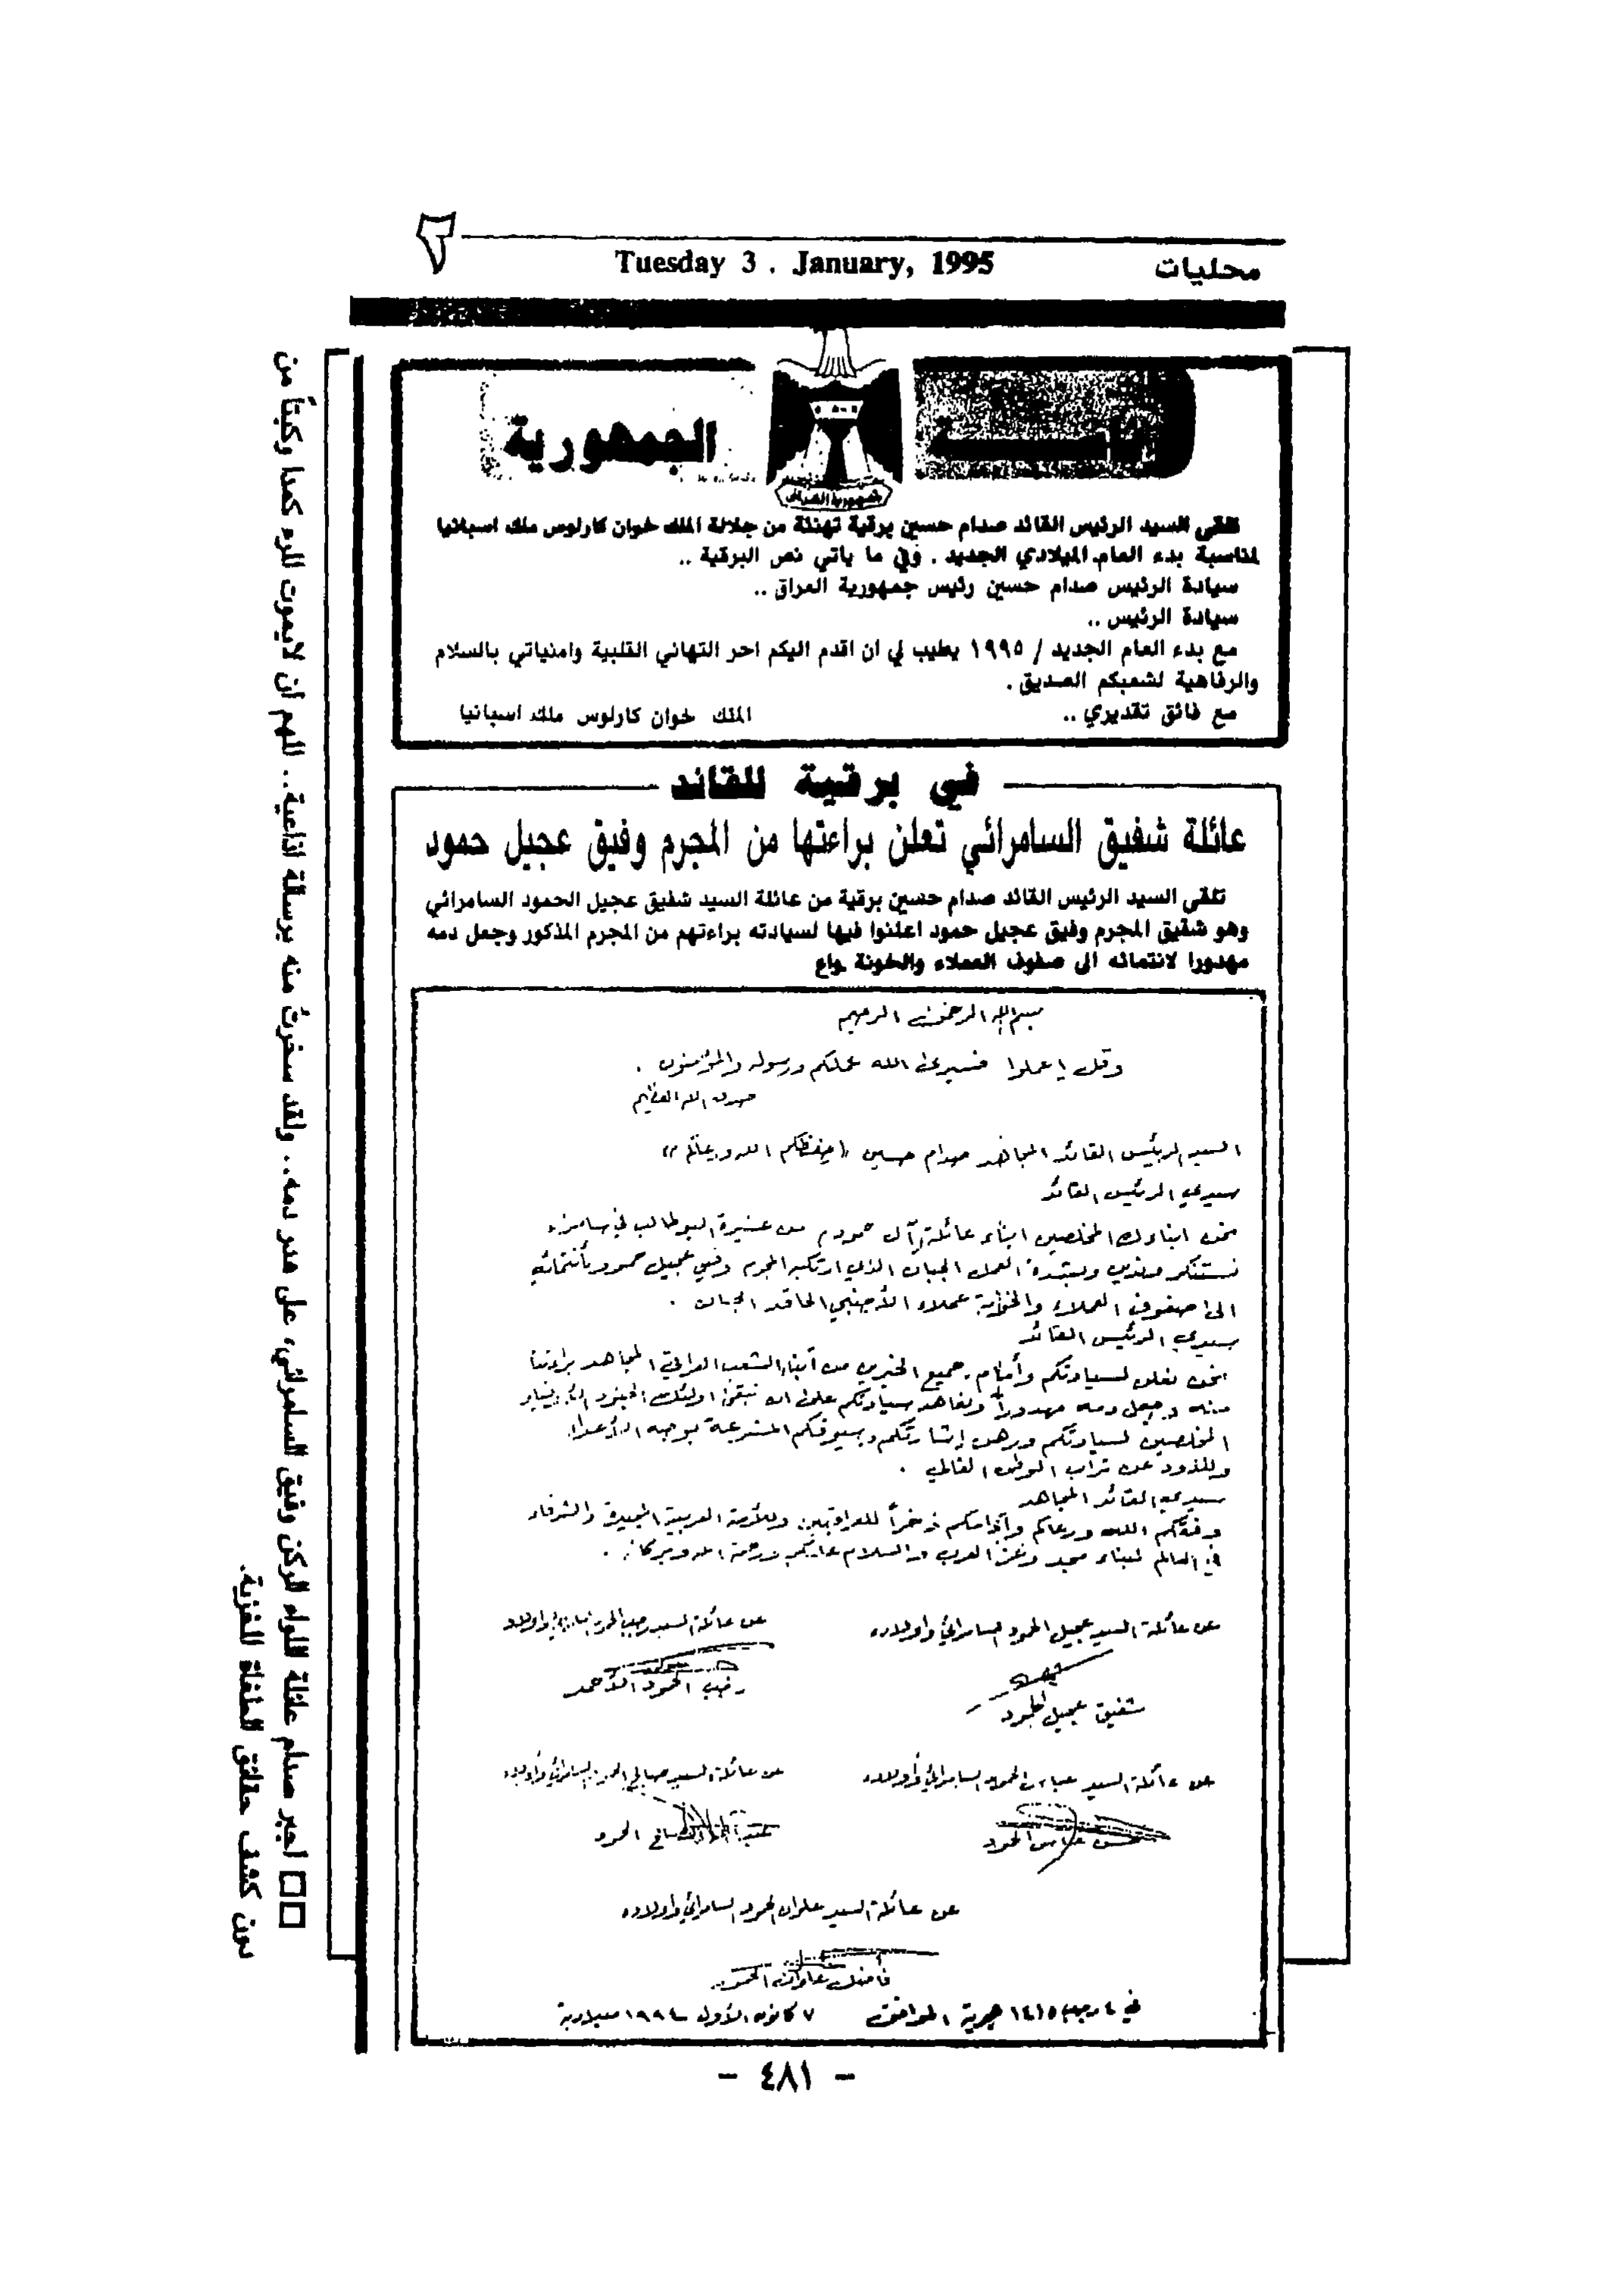 ٢
محليات Tuesday 3 . January, 1995
الجمهورية
جمهورية العراق
تلقى السيد الرئيس القائد صدام حسين برقية تهنئة من جلالة الملك خوان كارلوس ملك اسبانيا
لمناسبة بدء العام الميلادي الجديد . وفي ما ياتي نص البرقية ..
سيادة الرئيس صدام حسين رئيس جمهورية العراق ..
سيادة الرئيس ..
مع بدء العام الجديد / ١٩٩٥ يطيب لي ان اقدم اليكم احر التهاني القلبية وامنياتي بالسلام
والرفاهية لشعبكم الصديق .
مع فائق تقديري ..
الملك خوان كارلوس ملك اسبانيا
في برقية للقائد
عائلة شفيق السامرائي تعلن براءتها من المجرم وفيق عجيل حمود
تلقى السيد الرئيس القائد صدام حسين برقية من عائلة السيد شفيق عجيل الحمود السامرائي
وهو شقيق المجرم وفيق عجيل حمود اعلنوا فيها لسيادته براءتهم من المجرم المذكور وجعل دمه
مهدورا لانتمائه الى صفوف العملاء والخونة .واع
بسم الله الرحمن الرحيم
وقل إعملوا فسيرى الله عملكم ورسوله والمؤمنون .
صدق الله العظيم
السيد الرئيس القائد المجاهد صدام حسين "حفظكم الله ورعاكم"
سيدي الرئيس القائد
نحن ابناءك المخلصين ابناء عائلة آل حمود من عشيرة البو طالب في سامراء
نستنكر وبشدة العمل الجبان الذي ارتكبه المجرم وفيق عجيل حمود بأنتمائه
الى صفوف العملاء والخونة عملاء الأجنبي الحاقد الجبان .
سيدي الرئيس القائد
نحن نعلن لسيادتكم وأمام جميع الخيرين من أبناء الشعب العراقي المجاهد براءتنا
منه وجعل دمه مهدوراً ونعاهد سيادتكم على ان نبقى اولئك الجنود الأوفياء
المخلصين لسيادتكم ورهن إشارتكم وسيوفكم المشرعة بوجه الأعداء
وللذود عن تراب الوطن الغالي .
سيدي القائد المجاهد
وفقكم الله ورعاكم وأدامكم ذخراً للعراقيين وللأمة العربية المجيدة والشرفاء
في العالم لبناء مجد وعز العرب والسلام عليكم ورحمة الله وبركاته .
عن عائلة السيد عجيل الحمود السامرائي وأولاده
شفيق عجيل الحمود
عن عائلة السيد رجب الحمود السامرائي وأولاده
رجب الحمود الأحمد
عن عائلة السيد عباس الحمود السامرائي وأولاده
حسن عباس الحمود
عن عائلة السيد صالح الحمود السامرائي وأولاده
صالح الحمود
عن عائلة السيد علوان الحمود السامرائي وأولاده
فاضل علوان الحمود
في ٤ رجب ١٤١٥ هجرية الموافق ٧ كانون الأول ١٩٩٤ ميلادية
□□ اجبر صدام عائلة اللواء الركن وفيق السامرائي، على هدر دمه.. ولقد سخرتُ منه برسالة اذاعية.. المهم أن لايموت المرء كمدا وكبتاً من
دون كشف حقائق الطغاة المخزية.
- ٤٨١ -